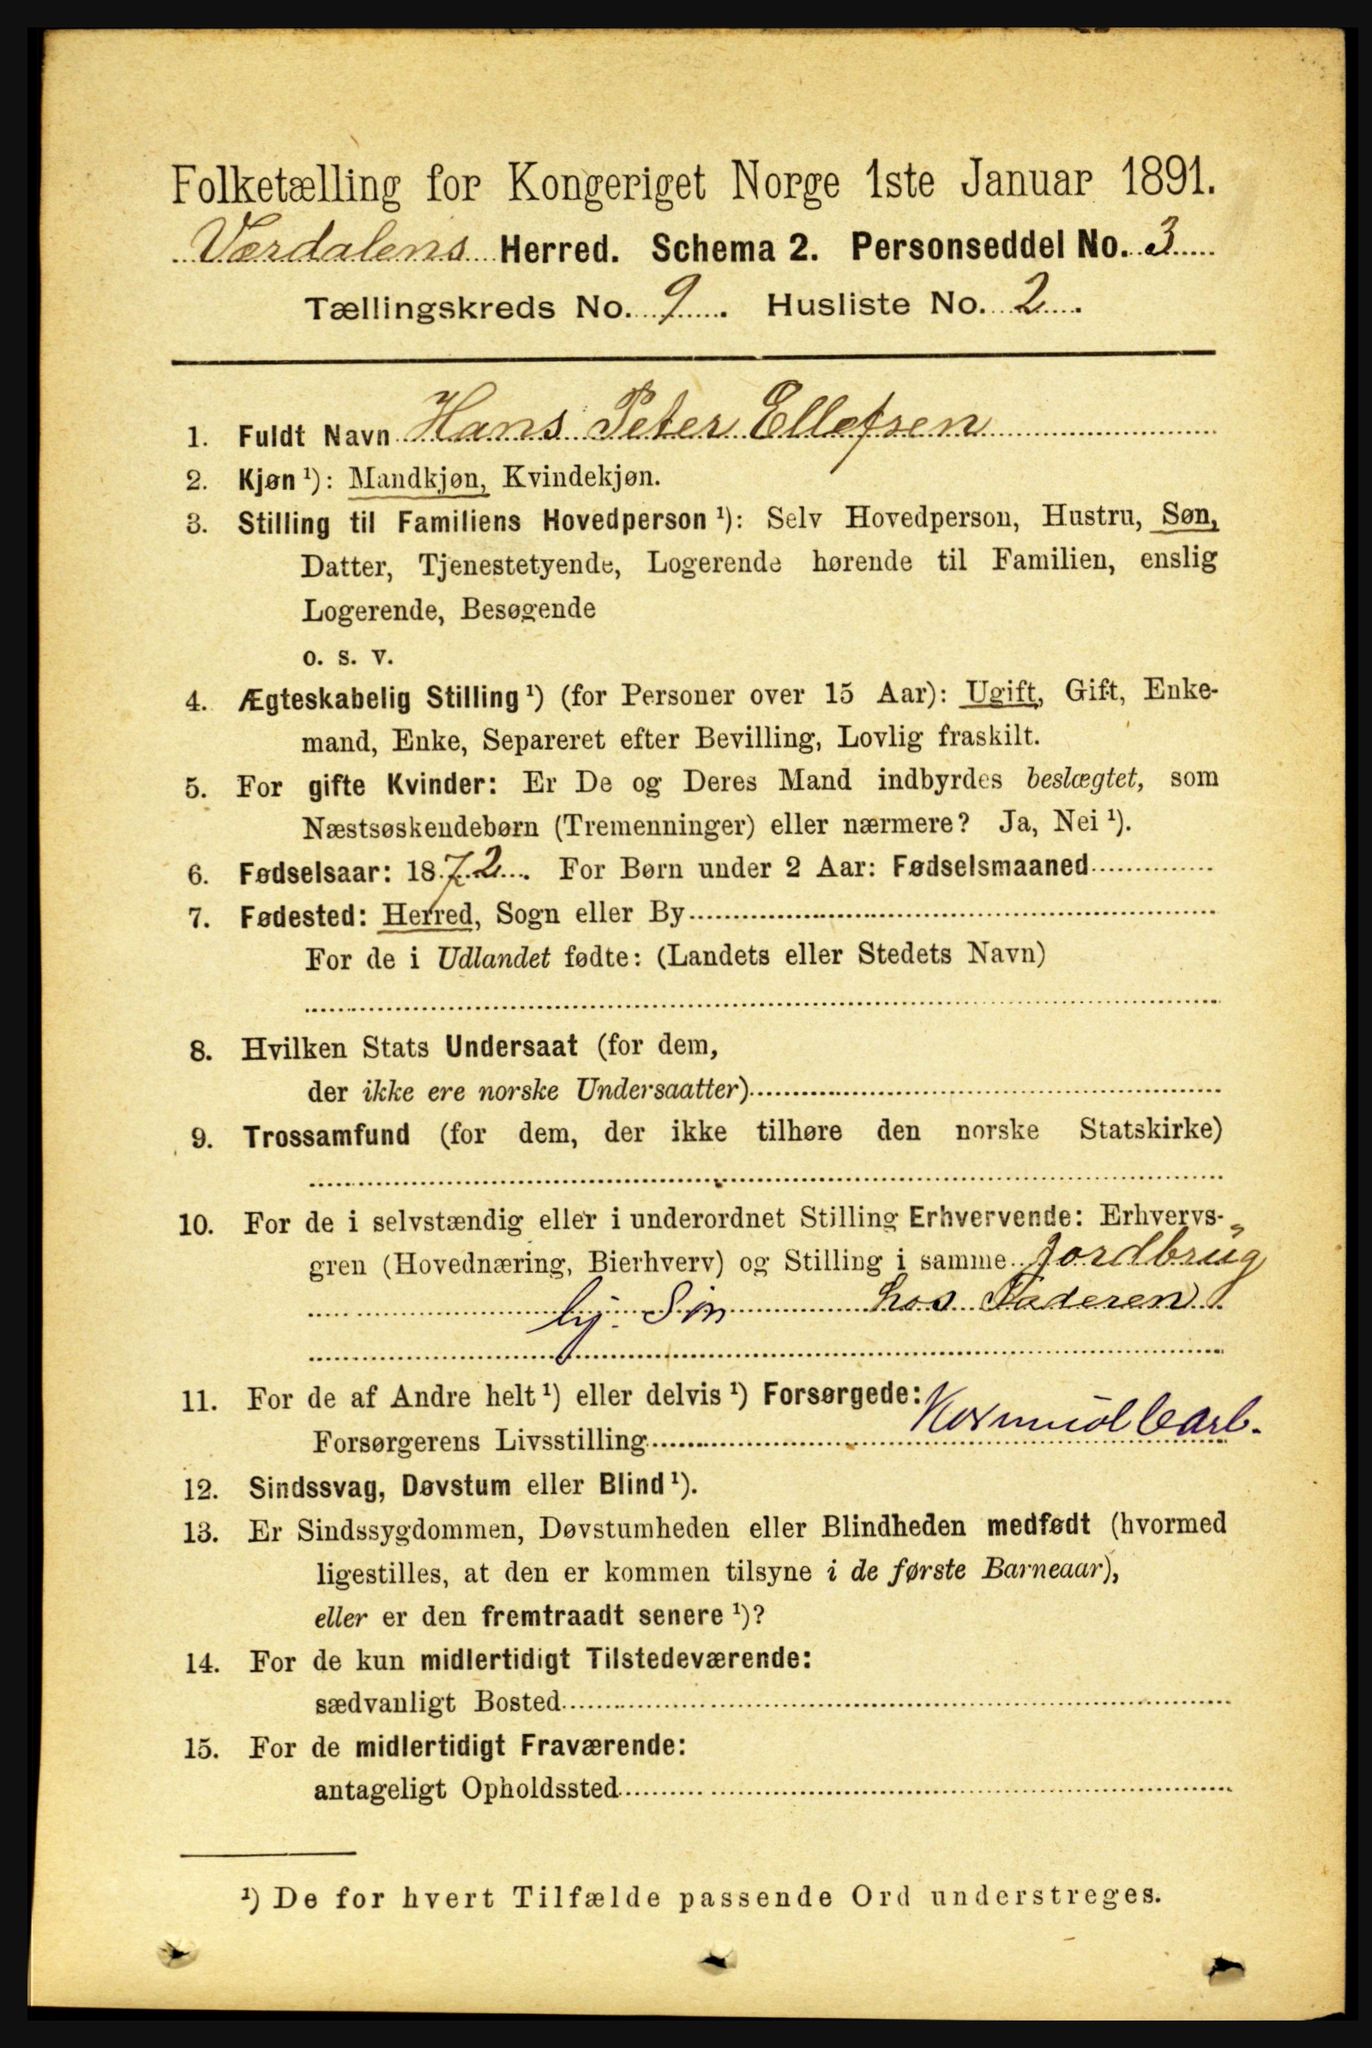 Folketælling for Kongeriget Norge 1ste Januar 1891.
Værdalens Herred. Schema 2. Personseddel No. 3
Tællingskreds No. 9. Husliste No. 2.
1. Fuldt Navn Hans Peter Ellefsen
2. Kjøn ¹): Mandkjøn, Kvindekjøn.
3. Stilling til Familiens Hovedperson ¹): Selv Hovedperson, Hustru, Søn,
Datter, Tjenestetyende, Logerende hørende til Familien, enslig
Logerende, Besøgende
o. s. v.
4. Ægteskabelig Stilling ¹) (for Personer over 15 Aar): Ugift, Gift, Enke-
mand, Enke, Separeret efter Bevilling, Lovlig fraskilt.
5. For gifte Kvinder: Er De og Deres Mand indbyrdes beslægtet, som
Næstsøskendebørn (Tremenninger) eller nærmere? Ja, Nei ¹).
6. Fødselsaar: 1872. For Børn under 2 Aar: Fødselsmaaned
7. Fødested: Herred, Sogn eller By
For de i Udlandet fødte: (Landets eller Stedets Navn)
8. Hvilken Stats Undersaat (for dem,
der ikke ere norske Undersaatter)
9. Trossamfund (for dem, der ikke tilhøre den norske Statskirke)
10. For de i selvstændig eller i underordnet Stilling Erhvervende: Erhvervs-
gren (Hovednæring, Bierhverv) og Stilling i samme Jordbrug
hj. Søn hos Faderen
11. For de af Andre helt ¹) eller delvis ¹) Forsørgede:
Forsørgerens Livsstilling
12. Sindssvag, Døvstum eller Blind ¹).
13. Er Sindssygdommen, Døvstumheden eller Blindheden medfødt (hvormed
ligestilles, at den er kommen tilsyne i de første Barneaar),
eller er den fremtraadt senere ¹)?
14. For de kun midlertidigt Tilstedeværende:
sædvanligt Bosted
15. For de midlertidigt Fraværende:
antageligt Opholdssted
¹) De for hvert Tilfælde passende Ord understreges.